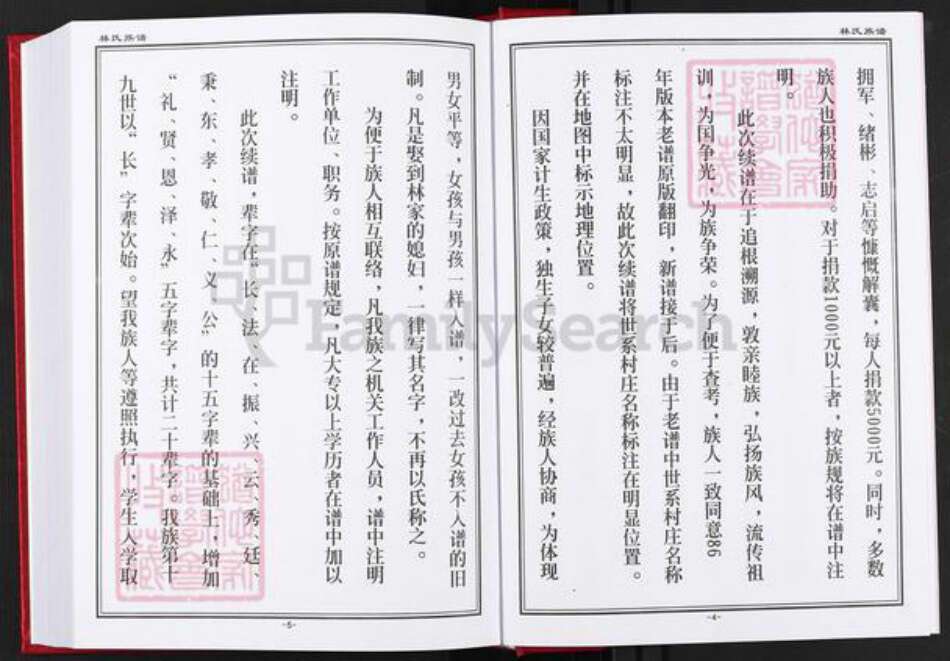 林氏族谱
拥军、绪彬、志启等慷慨解囊，每人捐款5000元。同时，多数
族人也积极捐助。对于捐款1000元以上者，按族规将在谱中注
明。
此次续谱在于追根溯源，敦亲睦族，弘扬族风，流传祖
训，为国争光，为族争荣。为了便于查考，族人一致同意86
年版本老谱原版翻印，新谱接于后。由于老谱中世系村庄名称
标注不太明显，故此次续谱将世系村庄名称标注在明显位置。
并在地图中标示地理位置。
因国家计生政策，独生子女较普遍，经族人协商，为体现
-4-
林氏族谱
男女平等，女孩与男孩一样入谱，一改过去女孩不入谱的旧
制。凡是娶到林家的媳妇，一律写其名字，不再以氏称之。
为便于族人相互联络，凡我族之机关工作人员，谱中注明
工作单位、职务。按原谱规定，凡大专以上学历者在谱中加以
注明。
此次续谱，辈字在“长、法、在、振、兴、云、秀、廷、
秉、东、孝、敬、仁、义、公”的十五字辈的基础上，增加
“礼、贤、恩、泽、永”五字辈字，共计二十辈字。我族第十
九世以“长”字辈次始。望我族人等遵照执行，学生入学取
-5-
FamilySearch